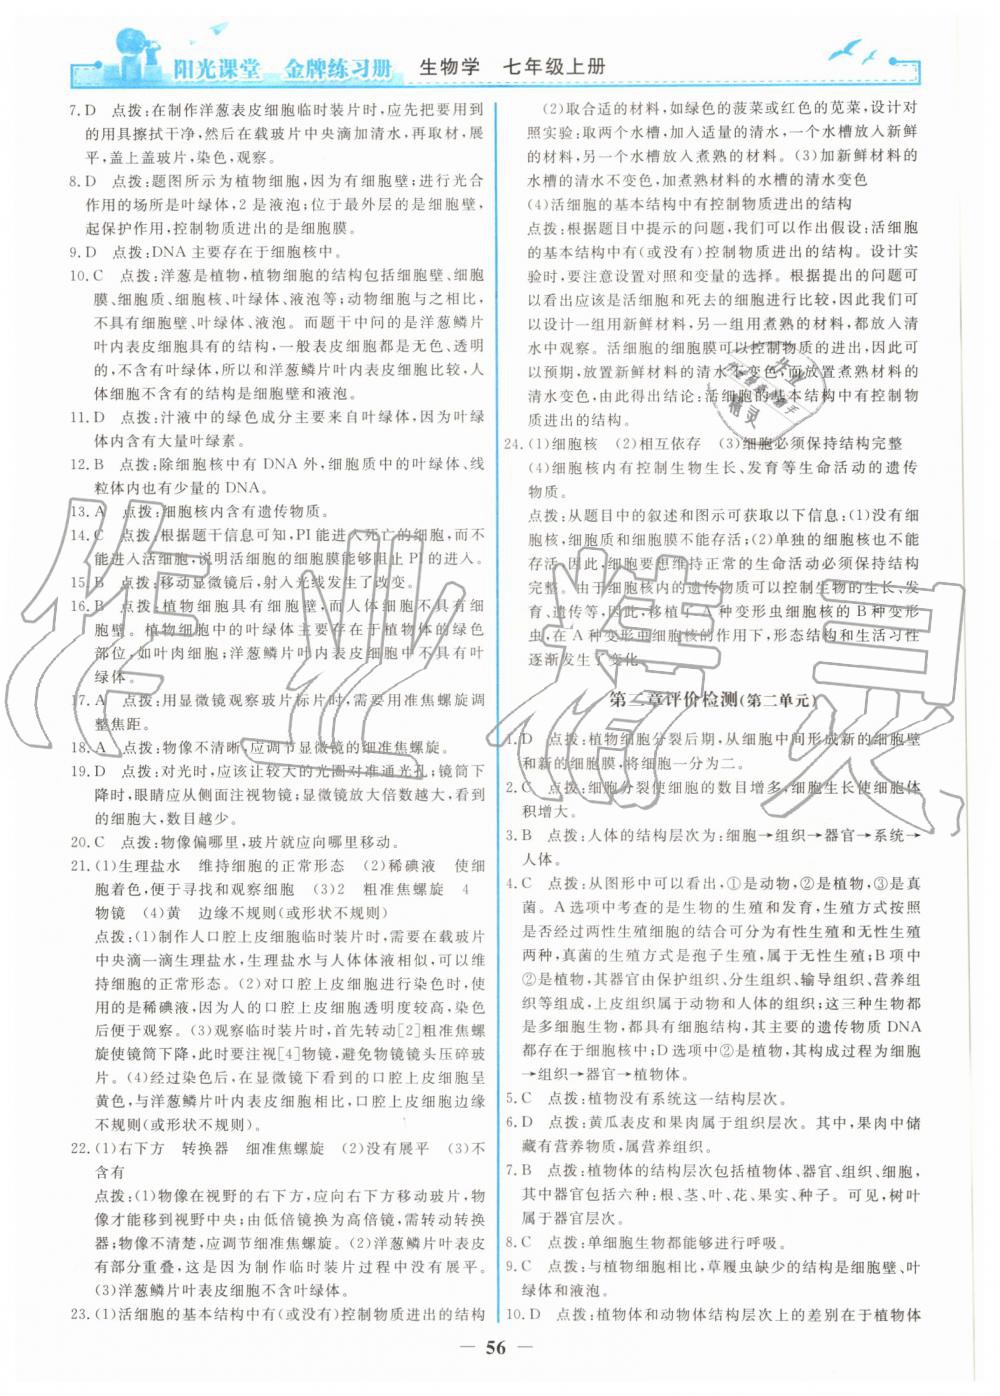 阳光课堂 金牌练习册 生物学 七年级上册
7. D 点拨:在制作洋葱表皮细胞临时装片时,应先把要用到
的用具擦拭干净,然后在载玻片中央滴加清水,再取材,展
平,盖上盖玻片,染色,观察。
8. D 点拨:题图所示为植物细胞,因为有细胞壁;进行光合
作用的场所是叶绿体,2是液泡;位于最外层的是细胞壁,
起保护作用,控制物质进出的是细胞膜。
9. D 点拨:DNA主要存在于细胞核中。
10. C 点拨:洋葱是植物,植物细胞的结构包括细胞壁、细胞
膜、细胞质、细胞核、叶绿体、液泡等;动物细胞与之相比,
不具有细胞壁、叶绿体、液泡。而题干中问的是洋葱鳞片
叶内表皮细胞具有的结构,一般表皮细胞都是无色、透明
的,不含有叶绿体,所以和洋葱鳞片叶内表皮细胞比较,人
体细胞不含有的结构是细胞壁和液泡。
11. D 点拨:汁液中的绿色成分主要来自叶绿体,因为叶绿
体内含有大量叶绿素。
12. B 点拨:除细胞核中有DNA外,细胞质中的叶绿体、线
粒体内也有少量的DNA。
13. A 点拨:细胞核内含有遗传物质。
14. C 点拨:根据题干信息可知,PI能进入死亡的细胞,而不
能进入活细胞,说明活细胞的细胞膜能够阻止PI的进入。
15. B 点拨:移动显微镜后,射入光线发生了改变。
16. B 点拨:植物细胞具有细胞壁,而人体细胞不具有细
胞壁。植物细胞中的叶绿体主要存在于植物体的绿色
部位,如叶肉细胞;洋葱鳞片叶内表皮细胞中不具有叶
绿体。
17. D 点拨:用显微镜观察玻片标片时,需要用准焦螺旋调
整焦距。
18. A 点拨:物像不清晰,应调节显微镜的细准焦螺旋。
19. D 点拨:对光时,应该让较大的光圈对准通光孔;镜筒下
降时,眼睛应从侧面注视物镜;显微镜放大倍数越大,看到
的细胞越大,数目越少。
20. C 点拨:物像偏哪里,玻片就应向哪里移动。
21. (1)生理盐水 维持细胞的正常形态 (2)稀碘液 使细
胞着色,便于寻找和观察细胞 (3)2 粗准焦螺旋 4
物镜 (4)黄 边缘不规则(或形状不规则)
点拨:(1)制作人口腔上皮细胞临时装片时,需要在载玻片
中央滴一滴生理盐水,生理盐水与人体体液相似,可以维
持细胞的正常形态。(2)对口腔上皮细胞进行染色时,使
用的是稀碘液,因为人的口腔上皮细胞透明度较高,染色
后便于观察。(3)观察临时装片时,首先转动[2]粗准焦螺
旋使镜筒下降,此时要注视[4]物镜,避免物镜镜头压碎玻
片。(4)经过染色后,在显微镜下看到的口腔上皮细胞呈
黄色,与洋葱鳞片叶内表皮细胞相比,口腔上皮细胞边缘
不规则(或形状不规则)。
22. (1)右下方 转换器 细准焦螺旋 (2)没有展平 (3)不
含有
点拨:(1)物像在视野的右下方,应向右下方移动玻片,使
物像才能移到视野中央;由低倍镜换为高倍镜,需转动转换
器;物像不清楚,应调节细准焦螺旋。(2)洋葱鳞片叶表皮
有部分重叠,这是因为制作临时装片过程中没有展平。
(3)洋葱鳞片叶表皮细胞不含叶绿体。
23. (1)活细胞的基本结构中有(或没有)控制物质进出的结构
(2)取合适的材料,如绿色的菠菜或红色的苋菜,设计对
照实验:取两个水槽,加入适量的清水,一个水槽放入新鲜
的材料,另一个水槽放入煮熟的材料。(3)加新鲜材料的
水槽的清水不变色,加煮熟材料的水槽的清水变色
(4)活细胞的基本结构中有控制物质进出的结构
点拨:根据题目中提示的问题,我们可以作出假设:活细胞
的基本结构中有(或没有)控制物质进出的结构。设计实
验时,要注意设置对照和变量的选择。根据提出的问题可
以看出应该是活细胞和死去的细胞进行比较,因此我们可
以设计一组用新鲜材料,另一组用煮熟的材料,都放入清
水中观察。活细胞的细胞膜可以控制物质的进出,因此可
以预期,放置新鲜材料的清水不变色,而放置煮熟材料的
清水变色,由此得出结论:活细胞的基本结构中有控制物
质进出的结构。
24. (1)细胞核 (2)相互依存 (3)细胞必须保持结构完整
(4)细胞核内有控制生物生长、发育等生命活动的遗传
物质。
点拨:从题目中的叙述和图示可获取以下信息:(1)没有细
胞核,细胞质和细胞膜不能存活;(2)单独的细胞核也不能
存活。因此,细胞要想维持正常的生命活动必须保持结构
完整。由于细胞核内的遗传物质可以控制生物的生长、发
育、遗传等,因此,移植了A种变形虫细胞核的B种变形
虫,在A种变形虫细胞核的作用下,形态结构和生活习性
逐渐发生了变化。
第二章评价检测(第二单元)
1. D 点拨:植物细胞分裂后期,从细胞中间形成新的细胞壁
和新的细胞膜,将细胞一分为二。
2. C 点拨:细胞分裂使细胞的数目增多,细胞生长使细胞体
积增大。
3. B 点拨:人体的结构层次为:细胞→组织→器官→系统→
人体。
4. C 点拨:从图形中可以看出,①是动物,②是植物,③是真
菌。A选项中考查的是生物的生殖和发育,生殖方式按照
是否经过两性生殖细胞的结合可分为有性生殖和无性生殖
两种,真菌的生殖方式是孢子生殖,属于无性生殖;B选项中
②是植物,其器官由保护组织、分生组织、输导组织、营养组
织等组成,上皮组织属于动物和人体的组织;这三种生物都
是多细胞生物,都具有细胞结构,其主要的遗传物质DNA
都存在于细胞核中;D选项中②是植物,其构成过程为细胞
→组织→器官→植物体。
5. C 点拨:植物没有系统这一结构层次。
6. D 点拨:黄瓜表皮和果肉属于组织层次。其中,果肉中储
藏有营养物质,属营养组织。
7. B 点拨:植物体的结构层次包括植物体、器官、组织,细胞,
其中器官包括六种:根、茎、叶、花、果实、种子。可见,树叶
属于器官层次。
8. C 点拨:单细胞生物都能够进行呼吸。
9. C 点拨:与植物细胞相比,草履虫缺少的结构是细胞壁、叶
绿体和液泡。
10. D 点拨:植物体和动物体结构层次上的差别在于植物体
— 56 —
作业精灵